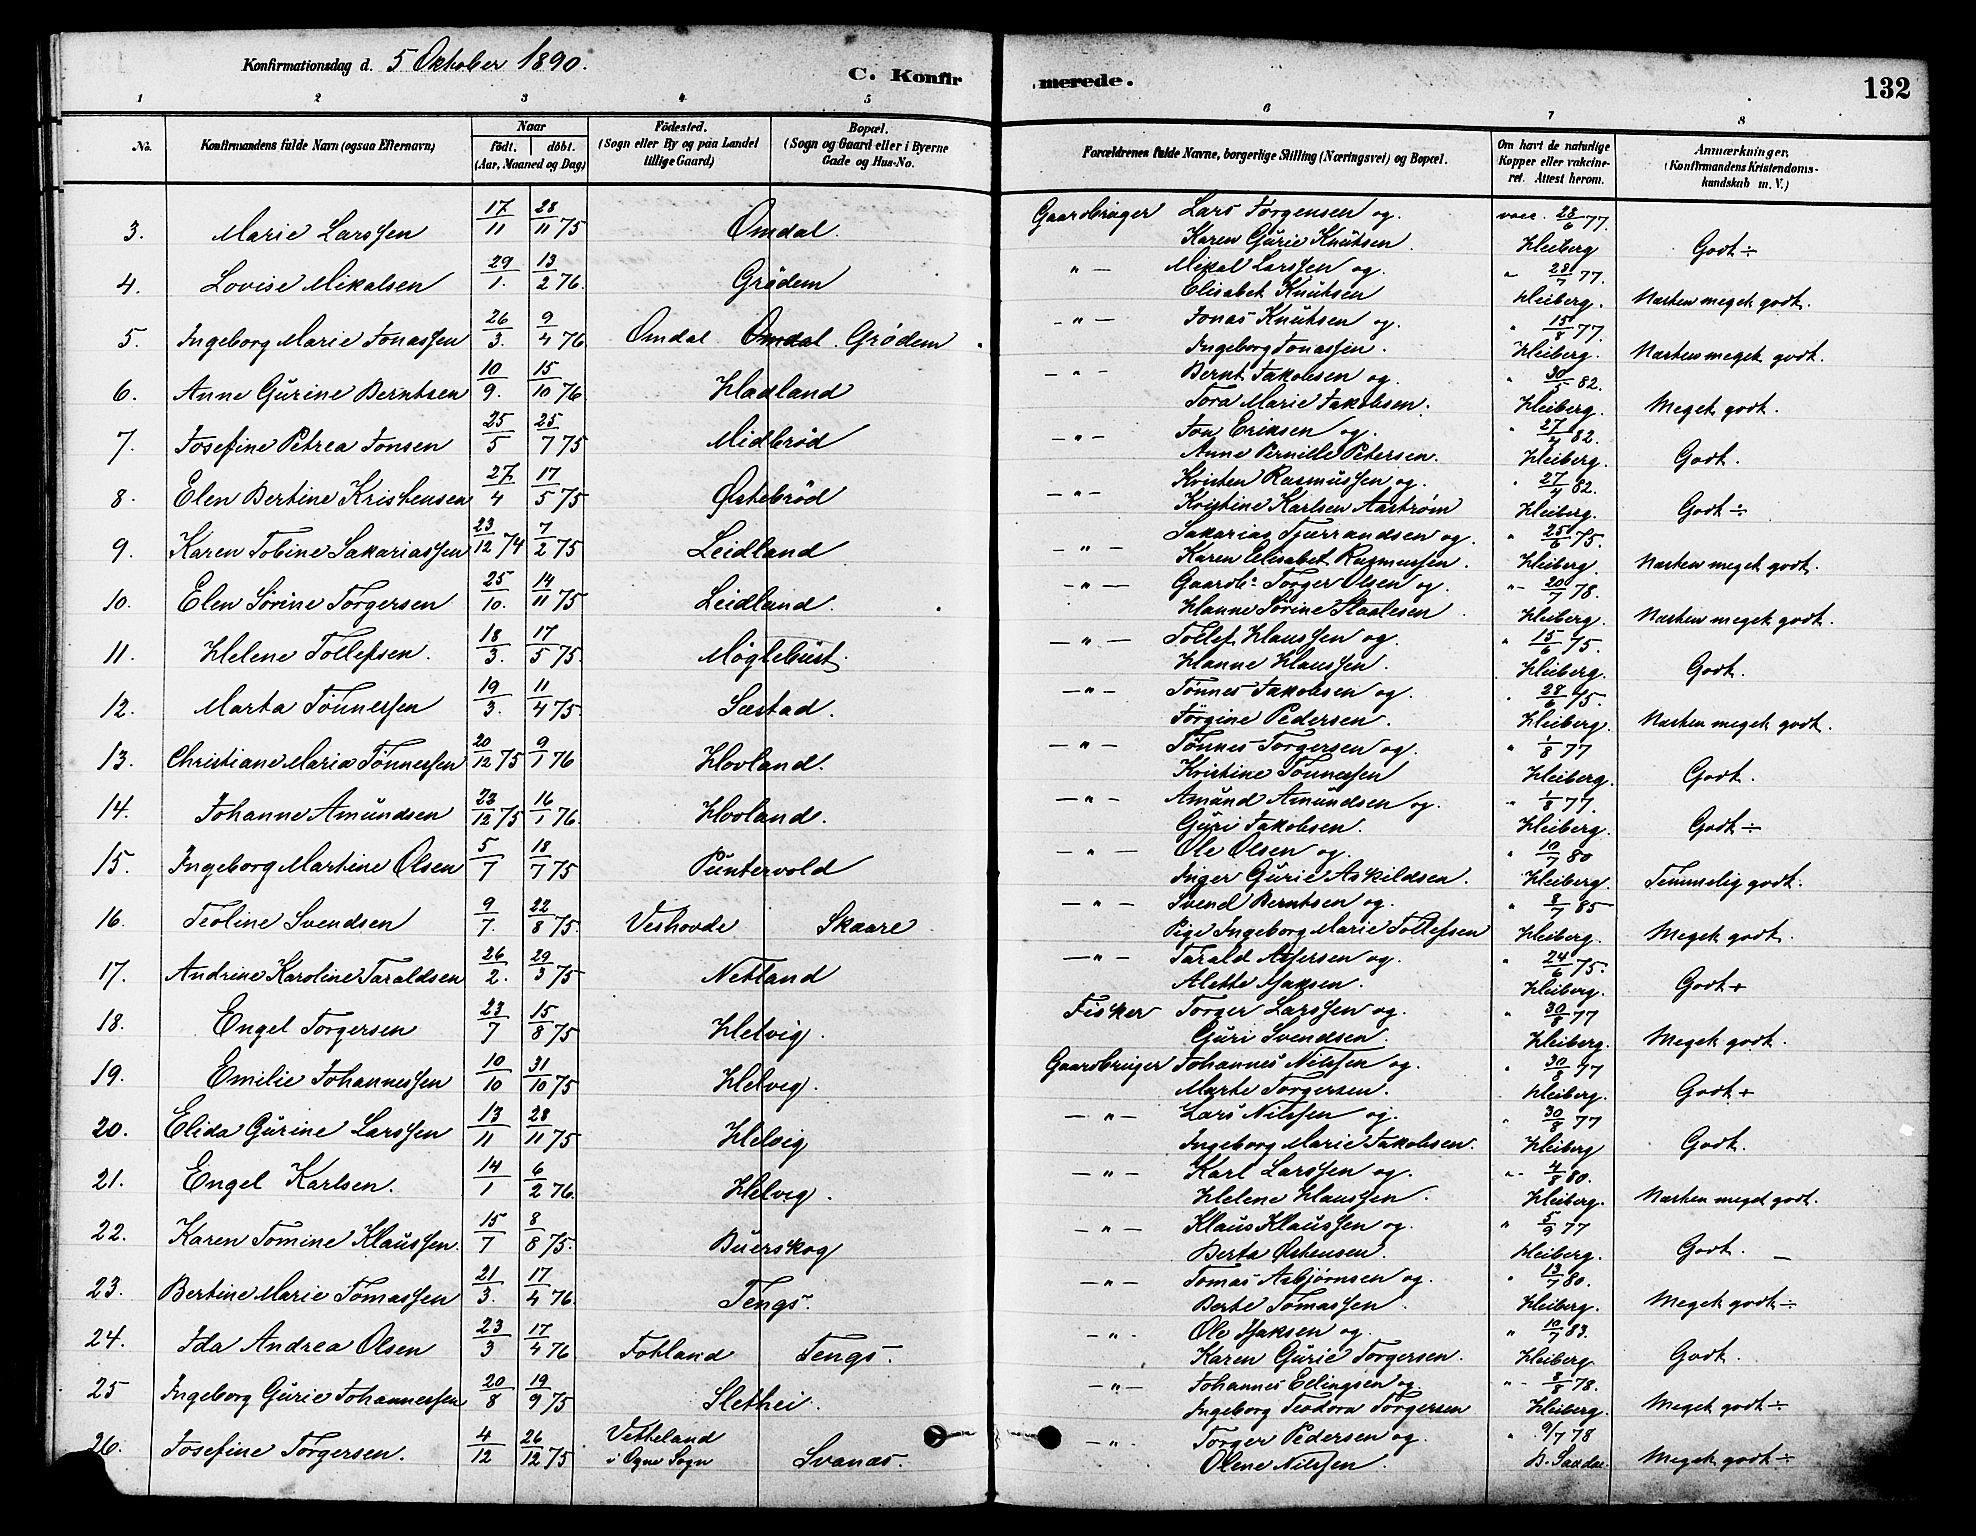 Konfirmationsdag d. 5 Oktober 1890.
C. Konfirmerede.
132
1 2 3 4 5 6 7 8
No.
Konfirmandens fulde Navn (ogsaa Efternavn)
Naar
födt. döbt.
(Aar, Maaned og Dag)
Födested.
(Sogn eller By og paa Landet
tillige Gaard)
Bopæl.
(Sogn og Gaard eller i Byerne
Gade og Hus-No.
Forældrenes fulde Navne, borgerlige Stilling (Næringsvei) og Bopæl.
Om havt de naturlige
Kopper eller vakcine-
ret. Attest herom.
Anmærkninger,
(Konfirmandens Kristendoms-
kundskab m. V.)
3. Marie Larssen 17/11 28/11 75 Omdal. Gaardbruger Lars Torgensen og vacc. 28/6 77.
Karen Gurie Knutsen. Heiberg Godt ÷
4. Lovise Mikalsen 29/1. 13/2 76. Grödem " — Mikal Larssen og. " 28/7 77.
Elisabet Knutsen Heiberg. Næsten meget godt.
5. Ingeborg Marie Jonassen 26/3. 9/4 76 Omdal Omdal. Grödem — " — Jonas Knutsen og. " 15/8 77.
Ingeborg Jonassen. Heiberg. Næsten meget godt.
6. Anne Gurine Berntsen 10/9. 15/10 76. Hadland — " — Bernt Jakobsen og. " 30/5 82.
Tora Marie Jakobsen. Heiberg. Meget godt.
7. Josefine Petrea Jonsen 25/5 25/7 75 Midbröd — " — Jon Eriksen og. " 27/4 82.
Anne Pernille Petersen. Heiberg. Godt.
8. Elen Bertine Kristensen 27/4 17/5 75 Östebröd — " — Kristen Rasmussen og. " 27/4 82.
Kristine Karlsen Aaström Heiberg. Godt ÷
9. Karen Tobine Sakariassen 23/12 74 7/2 75 Leidland — " — Sakarias Tjerrandsen og. " 25/6 75.
Karen Elisabet Rasmussen. Heiberg Næsten meget godt.
10. Elen Sörine Torgersen 25/10. 14/11 75 Leidland. — " — Gaardb. Torger Olsen og. " 20/7 78.
Hanne Sörine Staalesen Heiberg. Næsten meget godt.
11. Helene Tollefsen. 18/3. 17/5 75. Möglebust. — " — Tollef Klaussen og. " 15/6 75.
Hanne Klaussen. Heiberg. Godt.
12. Marta Tönnessen 19/3. 11/4 75. Sæstad. — " — Tönnes Jakobsen og. " 28/6 75.
Jörgine Pedersen. Heiberg Næsten meget godt.
13. Christiane Maria Tönnessen 20/12 75 9/1 76 Hovland. — " — Tönnes Torgersen og. " 1/8 77
Kristine Tönnessen Heiberg. Godt.
14. Johanne Amundsen 23/12 75 16/1 76. Hovland. — " — Amund Amundsen og. " 1/8 77.
Guri Jakobsen. Heiberg. Godt ÷
15. Ingeborg Martine Olsen 5/7 18/7 75 Puntervold — " — Ole Olsen og. " 10/7 80
Inger Gurie Askildsen. Heiberg. Temmelig godt.
16. Teoline Svendsen 9/7. 22/8 75. Veshovde Skaare. — " — Svend Berntsen og. " 8/7 85
Pige Ingeborg Marie Tollefsen Heiberg. Meget godt.
17. Andrine Karoline Taraldsen 26/2. 29/3 75 Netland — " — Tarald Assersen og. " 24/6 75.
Alette Isaksen. Heiberg. Godt +
18. Engel Torgersen 23/7 15/8 75 Helvig. Fisker Torger Larssen og. " 30/8 77
Guri Svendsen. Heiberg. Meget godt.
19. Emilie Johannessen 10/10 31/10 75 Helvig. Gaardbruger Johannes Nilssen og. " 30/8 77
Marte Torgersen. Heiberg. Godt +
20. Elida Gurine Larssen 13/11 28/11 75 Helvig — " — Lars Nilssen og. 30/8 77
Ingeborg Marie Jakobsen. Heiberg Godt.
21. Engel Karlsen. 14/1 6/2 76. Helvig. — " — Karl Larssen og. " 4/8 80.
Helene Klaussen. Heiberg. Næsten meget godt.
22. Karen Tomine Klaussen. 15/7 8/8 75. Buerskog — " — Klaus Klaussen og. " 5/9 77
Berta Östensen. Heiberg. Godt. —
23. Bertine Marie Tomassen 21/3. 17/4 76. Tengs. — " — Tomas Asbjörnsen og. " 13/7 80.
Berte Tomassen. Heiberg. Meget godt ÷
24. Ida Andrea Olsen 23/3 17/4 76 Fotland Tengs. — " . Ole Isaksen og. " 10/7 83.
Karen Gurie Torgersen. Heiberg. Godt.
25 Ingeborg Gurie Johannessen 20/8 19/9 75 Slethei. — " — Johannes Edingsen og " 8/8 78.
Ingeborg Teodora Torgersen Heiberg. Meget godt ÷
26. Josefine Torgersen. 4/12 26/12 75 Vetteland Svanæs. — " . Torger Pedersen og. " 9/7 78
i Ogne Sogn Olene Nilssen. Meget godt ÷